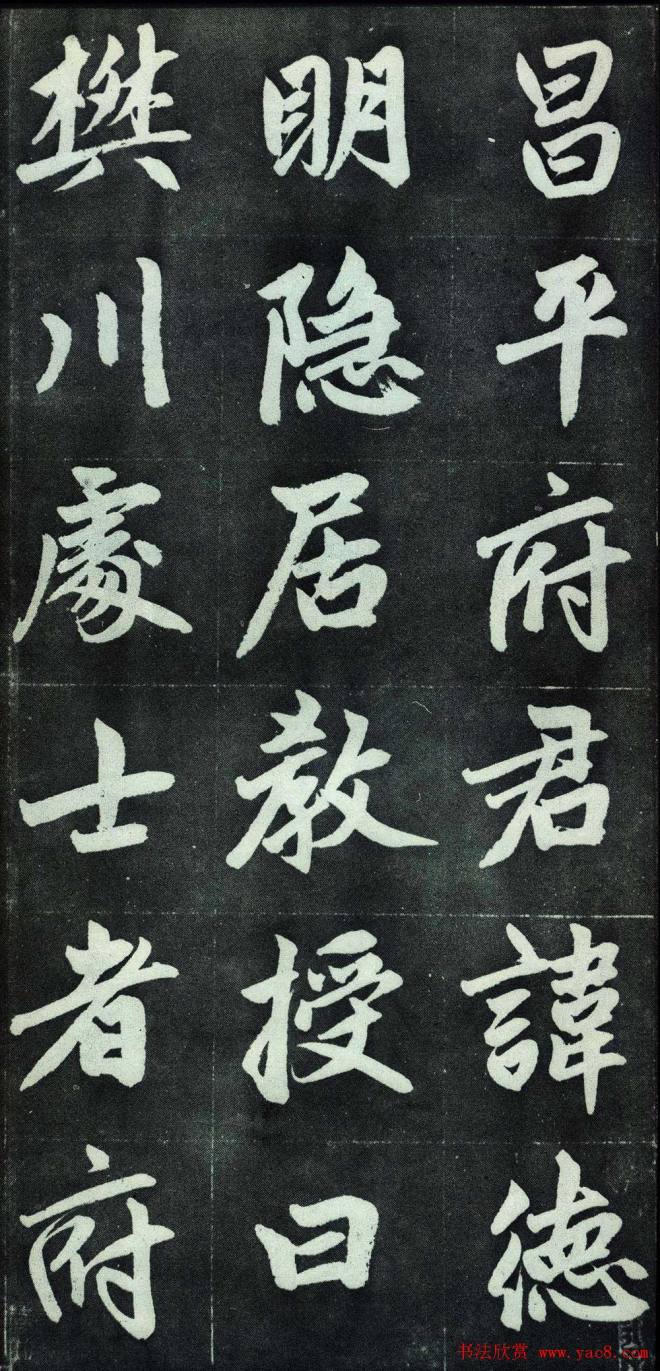 昌平府君諱德
明隐居教授曰
樊川處士者府
书法欣赏 www.yac8.com